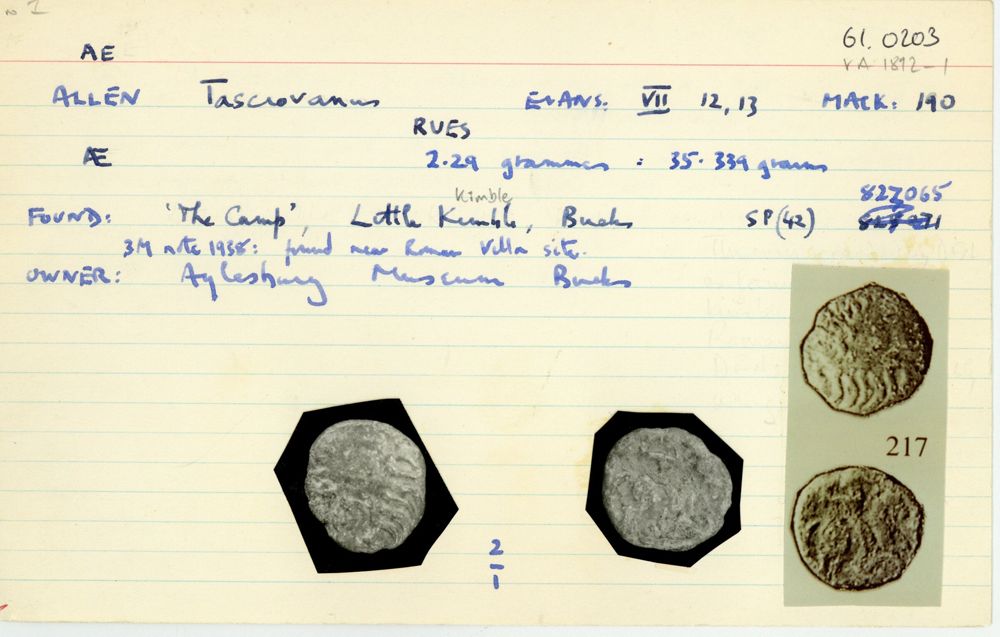 61.0203
AE
VA 1892-1
ALLEN Tasciovanus EVANS: VII 12, 13 MACK: 190
RUES
Æ 2.29 grammes : 35.339 grains
Kimble
827065
FOUND: 'The Camp', Little Kimble, Bucks SP (42)
3M note 1938: found near Roman Villa site.
OWNER: Aylesbury Museum Bucks
217
2
1